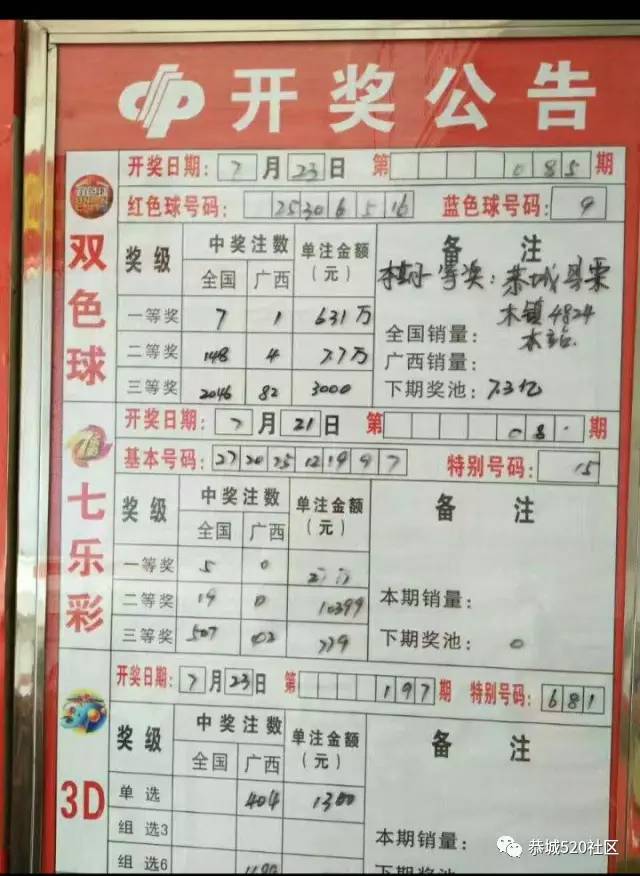 开奖公告
开奖日期: 7 月 23 日 第 085 期
双色球
红色球号码: 25 30 6 5 16 蓝色球号码: 9
奖级 中奖注数 单注金额(元) 备注
全国 广西
本期一等奖: 恭城县栗
木镇4824
本站.
一等奖 7 1 631万
全国销量:
二等奖 148 4 7.7万
广西销量:
三等奖 2046 82 3000
下期奖池: 7.3亿
开奖日期: 7 月 21 日 第 08 期
七乐彩
基本号码: 27 20 25 12 19 9 7 特别号码: 15
奖级 中奖注数 单注金额(元) 备注
全国 广西
一等奖 5 0
二等奖 19 0 10399
本期销量:
三等奖 507
下期奖池: 0
开奖日期: 7 月 23 日 第 197 期 特别号码: 6 8 1
3D
奖级 中奖注数 单注金额(元) 备注
全国 广西
单选 404 1300
组选3
本期销量:
组选6
下期奖池:
恭城520社区